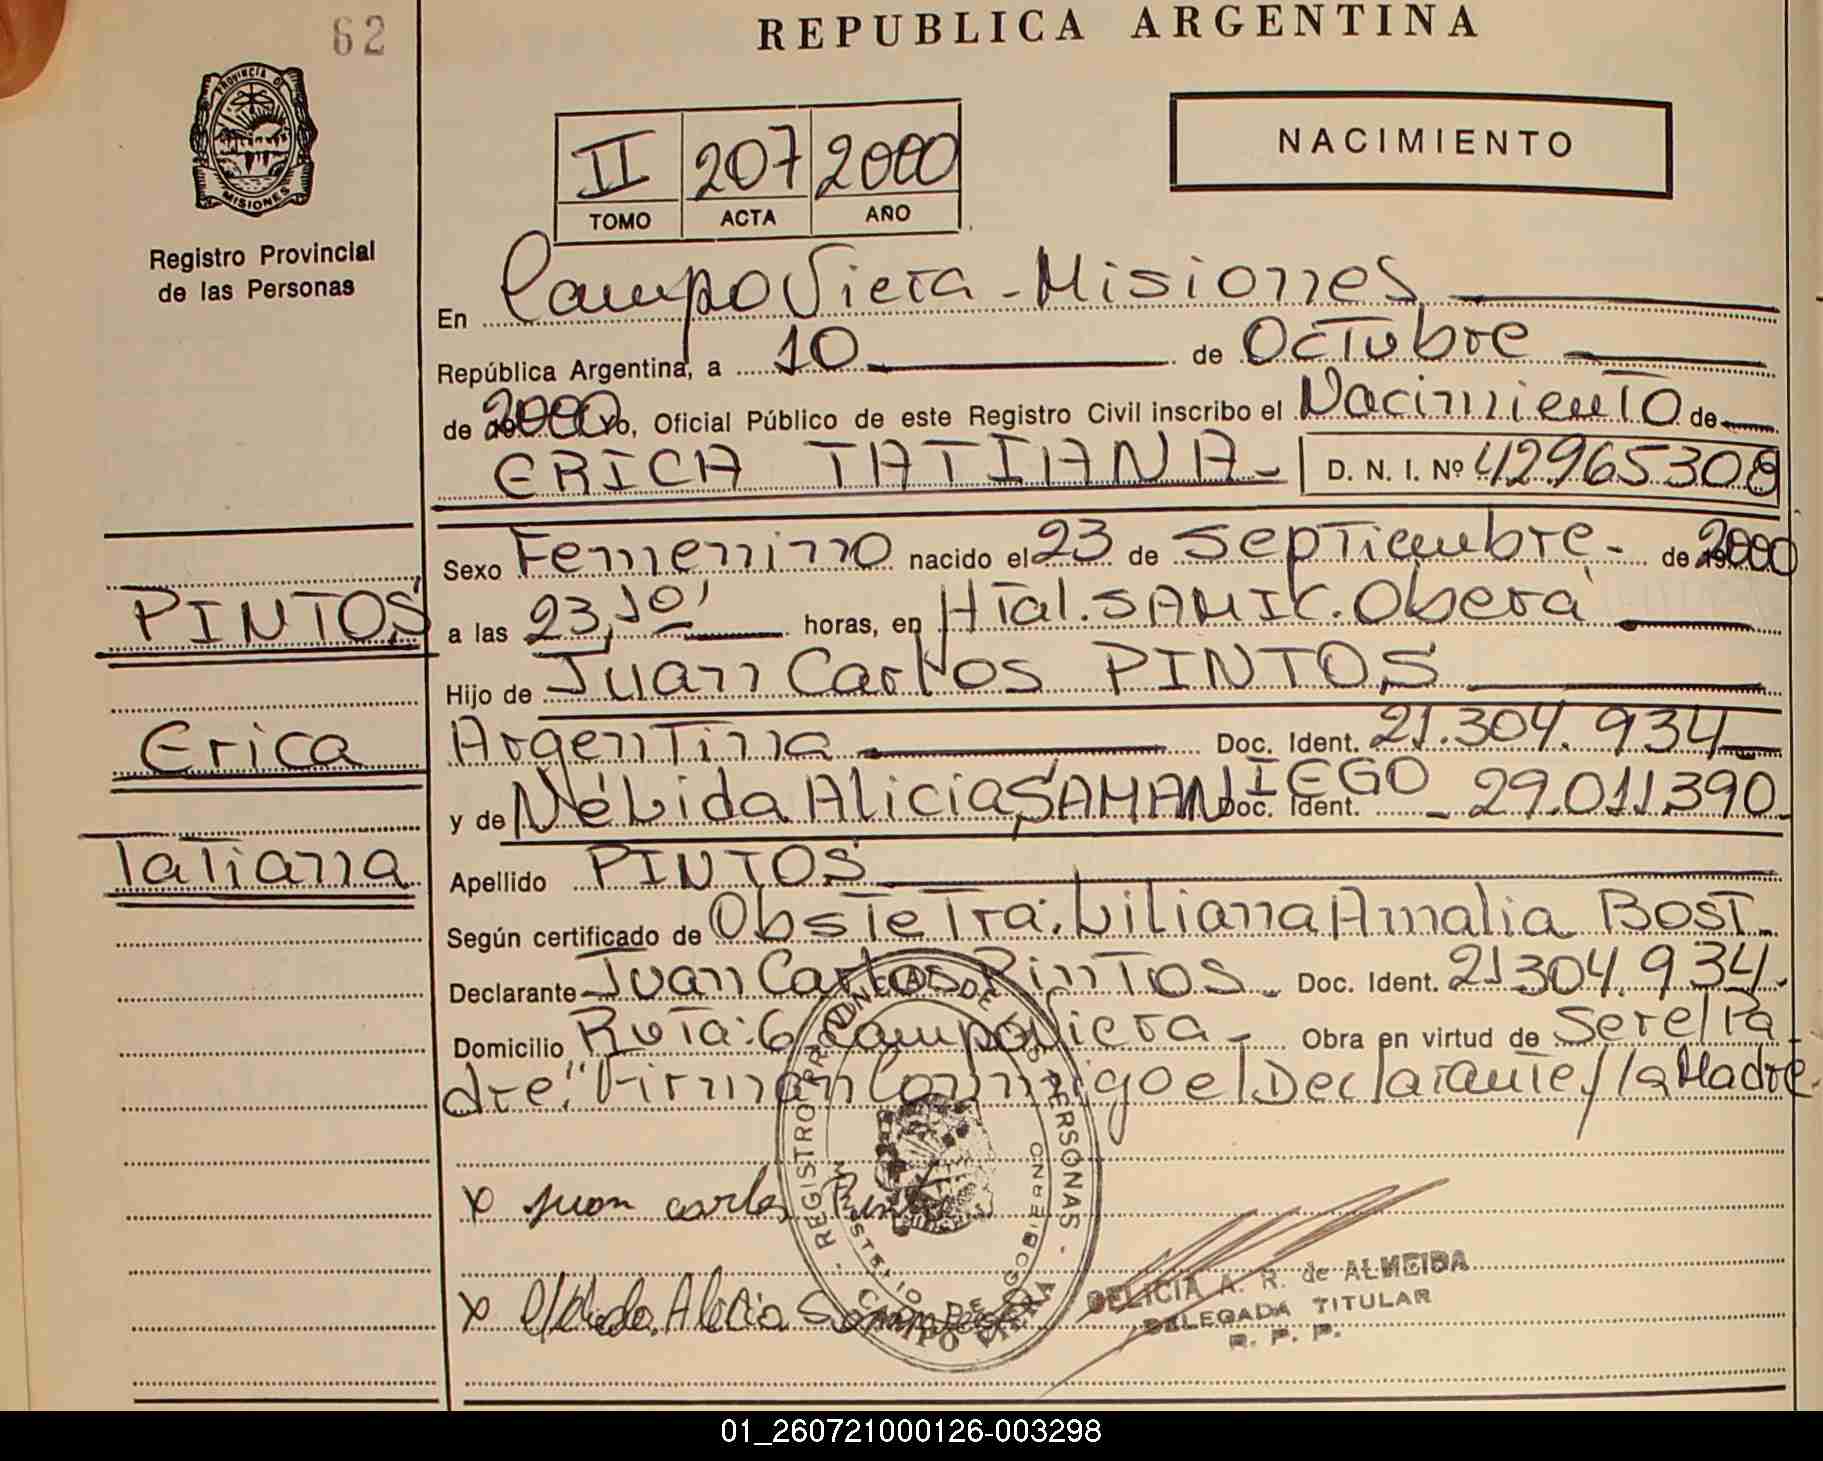 62
REPUBLICA ARGENTINA
PROVINCIA DE
MISIONES
Registro Provincial
de las Personas
NACIMIENTO
II 207 2000
TOMO ACTA AÑO
En Campo Viera - Misiones
República Argentina, a 10 de Octubre
de 2000 yo, Oficial Público de este Registro Civil inscribo el Nacimiento de
ERICA TATIANA - D. N. I. Nº 42965308
Sexo Femenino nacido el 23 de Septiembre - de 2000
PINTOS
a las 23,10' horas, en Htal. SAMIC. Oberá
Hijo de Juan Carlos PINTOS
Erica
Argentina Doc. Ident. 21.304.934
y de Nélida Alicia SAMANIEGO Doc. Ident. - 29.011.390
Tatiana
Apellido PINTOS
Según certificado de Obstetra: Liliana Amalia BOST.
Declarante Juan Carlos Pintos - Doc. Ident. 21304.934.
Domicilio Ruta: 6 Campo Viera - Obra en virtud de ser el Pa
dre." Firman Conmigo el Declarante y la Madre.
REGISTRO PROVINCIAL DE LAS PERSONAS
MINISTERIO DE GOBIERNO
CAMPO VIERA
x Juan carlos Pintos
x Alicia
DELICIA A. R. de ALMEIDA
DELEGADA TITULAR
R. P. P.
01_260721000126-003298